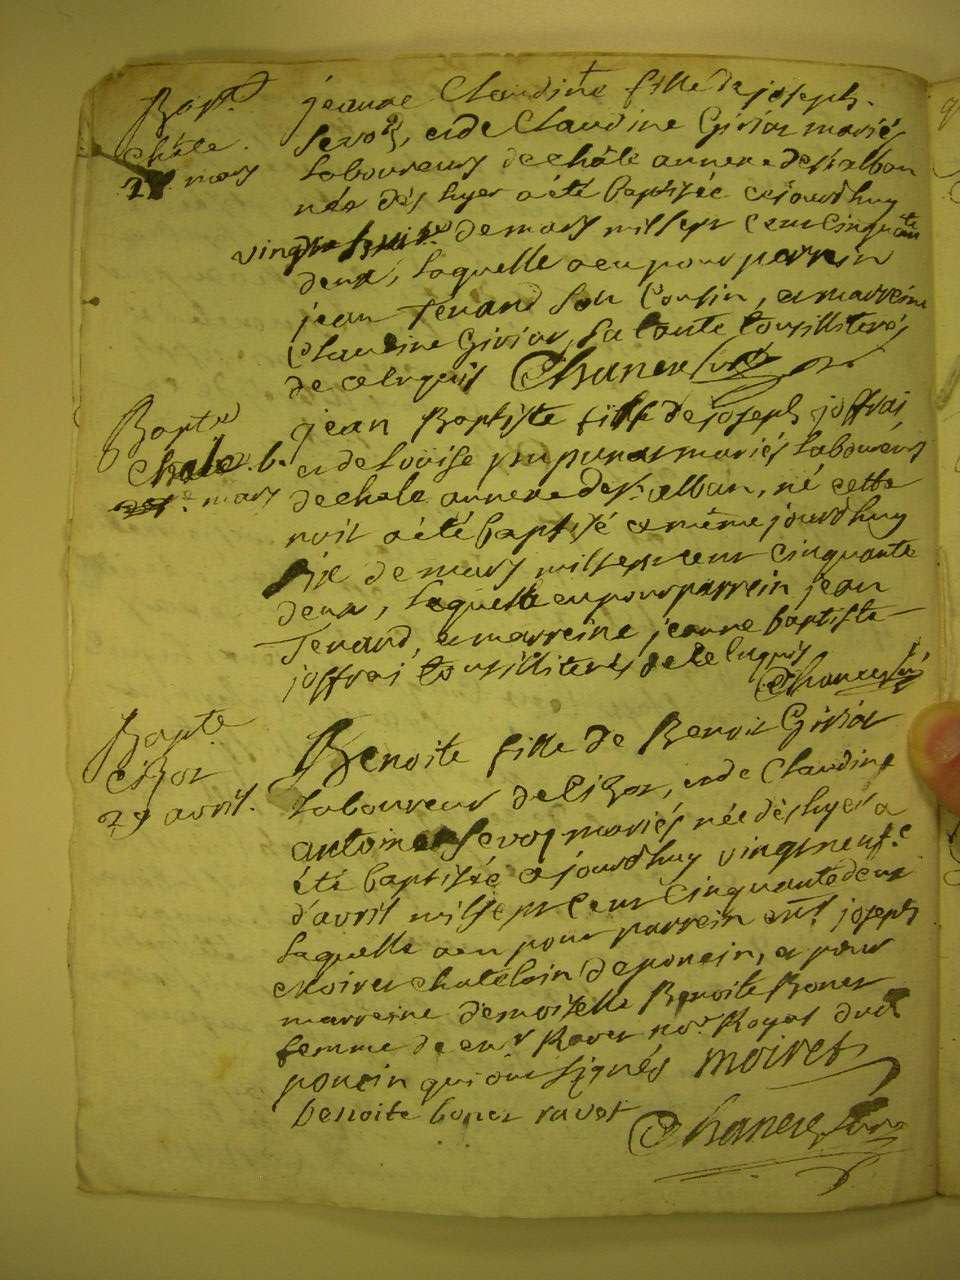 Bapt.
Chale.
28 mars
jeanne Claudine fille de joseph
Sevoz, et de Claudine Giriat mariés
laboureurs de chale annexe de st alban
née dès hyer a été baptisée cejourdhuy
vingt huit de mars mil sept cent cinquante
deux, laquelle a eu pour parrein
jean Tenand son Cousin, et marreine
Claudine Giriat, sa tante tous illiterés
de ce enquis Chanel curé
Bapte
Chale. b.
mars
jean Baptiste fils de joseph joffrai,
et de Loüise mariés laboureurs
de chale annexe de st alban, né cette
nuit a été baptisé ce même jourdhuy
de mars mil sept cent cinquante
deux, laquelle a eu pour parrein jean
Tenand, et marreine jeanne baptiste
joffrai tous illiterés de ce enquis
Chanel curé
Bapte
Cizot
29 avril.
Benoite fille de Benoit Giriat
laboureur de Cizot, et de Claudine
antoine Sevoz mariés née dès hyer a
été baptisée cejourdhuy vingt neuf e
d'avril mil sept cent cinquante deux
laquelle a eu pour parrein joseph
Moiret chatelain de poncin, et pour
marreine demoiselle Benoite Bonet
femme de Ravet nore Royal dud
poncin qui ont signés Moiret
benoite bonet ravet
Chanel curé